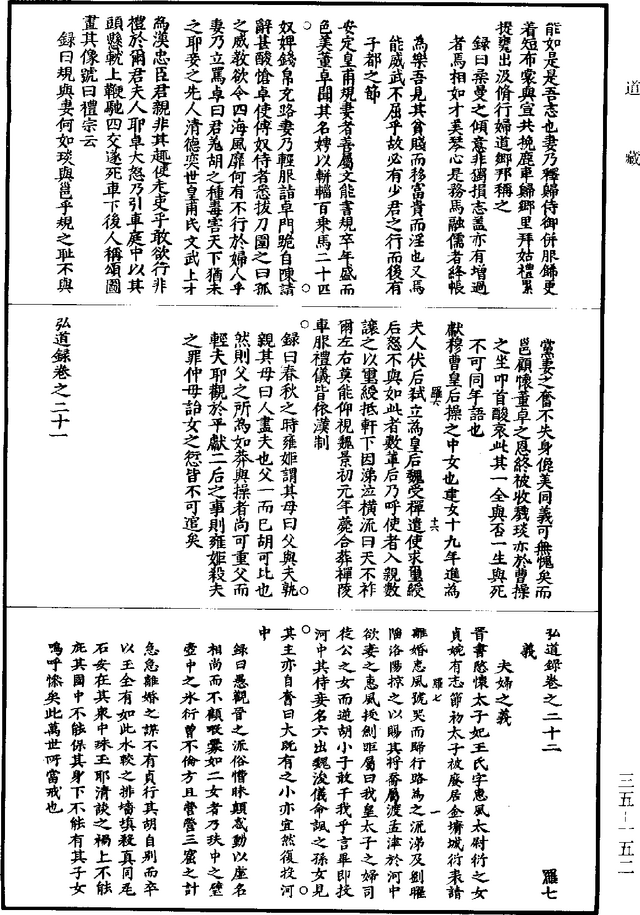 道藏
能如是是吾志也妻乃釋歸侍御併服飾更
着短布裳與宣共挽鹿車歸鄉里拜姑禮畢
提甕出汲脩行婦道鄉邦稱之
錄曰桑曼之傾意非獨損志蓋亦有增過
者焉相如才美琴心是務馬融儒者絳帳
為樂吾見其貧賤而移富貴而淫也又焉
能威武不屈乎故必有少君之行而後有
子都之節
安定皇甫規妻者善屬文能書規卒年盛而
色美董卓聞其名娉以軿輜百乘馬二十匹
奴婢錢帛充路妻乃輕服詣卓門跪自陳請
辭甚酸愴卓使傅奴侍者悉拔刀圍之曰孤
之威教欲令四海風靡何有不行於婦人乎
妻乃立罵卓曰君羌胡之種毒害天下猶未
之耶妾之先人清德奕世皇甫氏文武上才
為漢忠臣君親非其趣使走吏乎敢欲行非
禮於爾君夫人耶卓大怒乃引車庭中以其
頭懸軛上鞭馳四交遂死車下後人稱頌圖
畫其像號曰禮宗云
錄曰規與妻何如琰與邕乎規之恥不與
黨妻之奮不失身儷美同義可無愧矣而
邕顧懷董卓之恩終被收戮琰亦於曹操
之坐叩首酸哀此其一全與否一生與死
不可同年語也
獻穆曹皇后操之中女也建安十九年進為
夫人伏后弒立為皇后魏受禪遣使求璽綬
后怒不與如此者數輩后乃呼使者入親數
讓之以璽綬抵軒下因涕泣橫流曰天不祚
爾左右莫能仰視魏景初元年薨合葬禪陵
車服禮儀皆依漢制
錄曰春秋之時雍姬謂其母曰父與夫孰
親其母曰人盡夫也父一而已胡可比也
然則父之所為如莽與操者尚可重父而
輕夫耶觀於平獻二后之事則雍姬殺夫
之罪仲母詒女之愆皆不可逭矣
弘道錄卷之二十一
羅六
十六
弘道錄卷之二十二
羅七
義
夫婦之義
晉書愍懷太子妃王氏字惠風太尉衍之女
貞婉有志節初太子被廢居金墉城衍表請
離婚惠風號哭而歸行路為之流涕及劉曜
陷洛陽掠之以賜其將喬屬渡孟津於河中
欲妻之惠風拔劍距屬曰我皇太子之婦司
徒公之女而逆胡小子敢干我乎言畢即投
河中其侍妾名六出魏浚儀命諷之孫女見
其主亦自奮曰大既有之小亦宜然復投河
中
錄曰愚觀晉之派俗懵昧顛惑動以虛名
相尚而不顧嘅羹如二女者乃玦中之璧
壺中之冰行曾不倫方且營營三窟之計
急急離婚之謀不有貞行其胡自別而卒
以王全有如此水較之排墻填殺真同毛
石安在其衆中珠玉耶清談之禍上不能
庇其國中不能保其身下不能有其子女
嗚呼慘矣此萬世所當戒也
羅七
一
三五—一五二